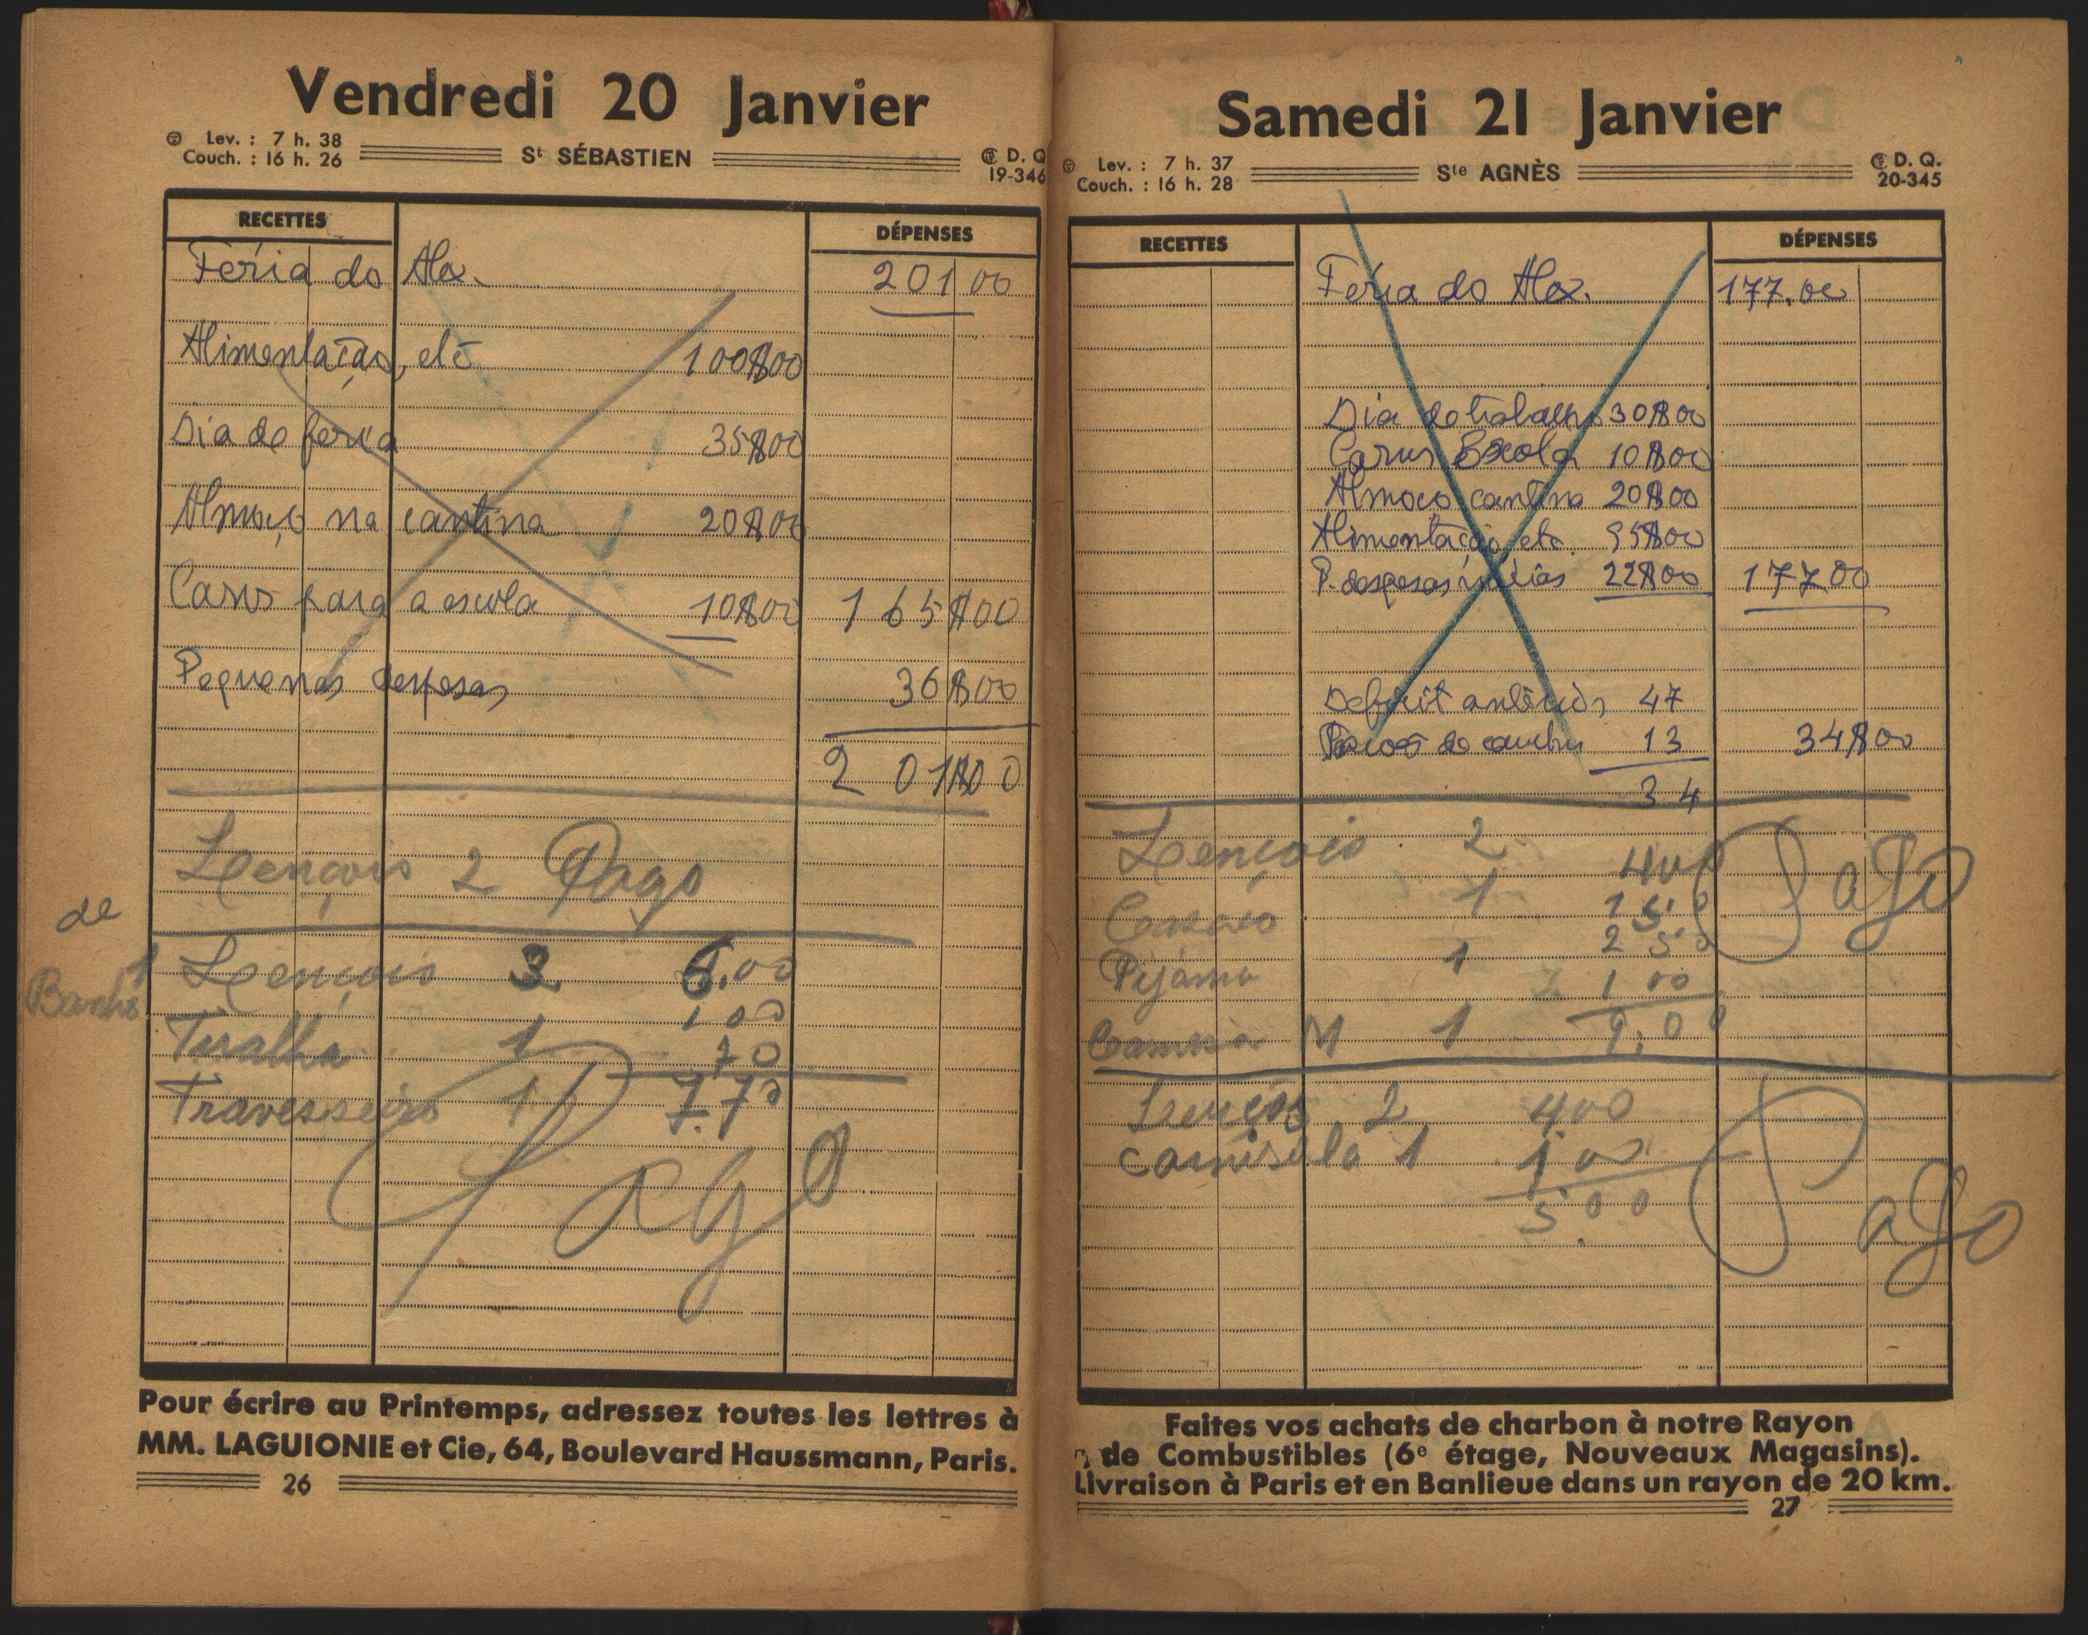 Vendredi 20 Janvier
Lev. : 7 h. 38
Couch. : 16 h. 26
St SÉBASTIEN
D. Q
19-346
RECETTES
DÉPENSES
Féria do Alex. 201 00
Alimentação, etc 100$00
Dia de feria 35$00
Almoço na cantina 20$00
Carros para a escola 10$00 165$00
Pequenas despesas 36$00
201$00
Lençois 2 Pago
de
Banho
Lençois 3 6.00
Tualha 1 1 00
70
Travesseiro 1 7.70
Pago
Pour écrire au Printemps, adressez toutes les lettres à
MM. LAGUIONIE et Cie, 64, Boulevard Haussmann, Paris.
26
Samedi 21 Janvier
Lev. : 7 h. 37
Couch. : 16 h. 28
Ste AGNÈS
D. Q.
20-345
RECETTES
DÉPENSES
Féria do Alex. 177.00
Dia de trabalho 30$00
Carros Escola 10$00
Almoco cantina 20$00
Alimentação etc. 95$00
P. despesas 22$00 177 00
Deficit anterior 47
13 34$00
34
Lençois 2 400
1 1 50
Pijama 1 2 50
1 00
Camisa M 1 9.00
Pago
Lençois 2 400
Camisola 1 1 00
5.00
Pago
Faites vos achats de charbon à notre Rayon
de Combustibles (6e étage, Nouveaux Magasins).
Livraison à Paris et en Banlieue dans un rayon de 20 km.
27